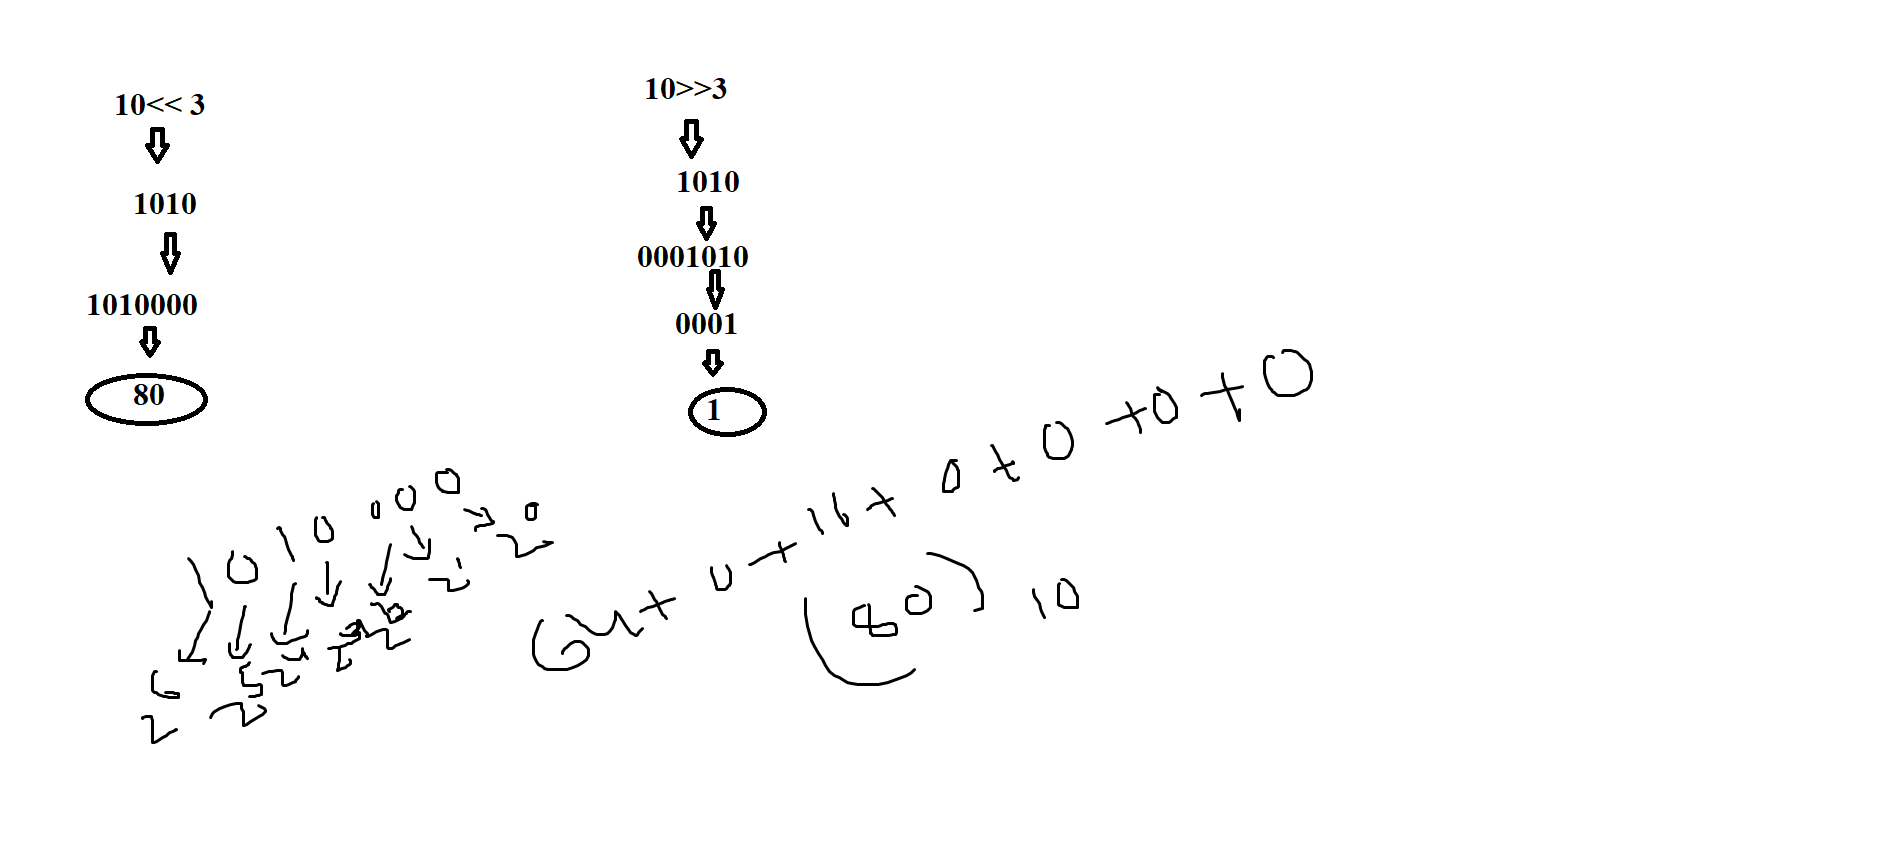 10<< 3
1010
1010000
80
10>>3
1010
0001010
0001
1
1 0 1 0 0 0 0
2^6 2^5 2^4 2^3 2^2 2^1 2^0
64 + 0 + 16 + 0 + 0 + 0 + 0
(80)10